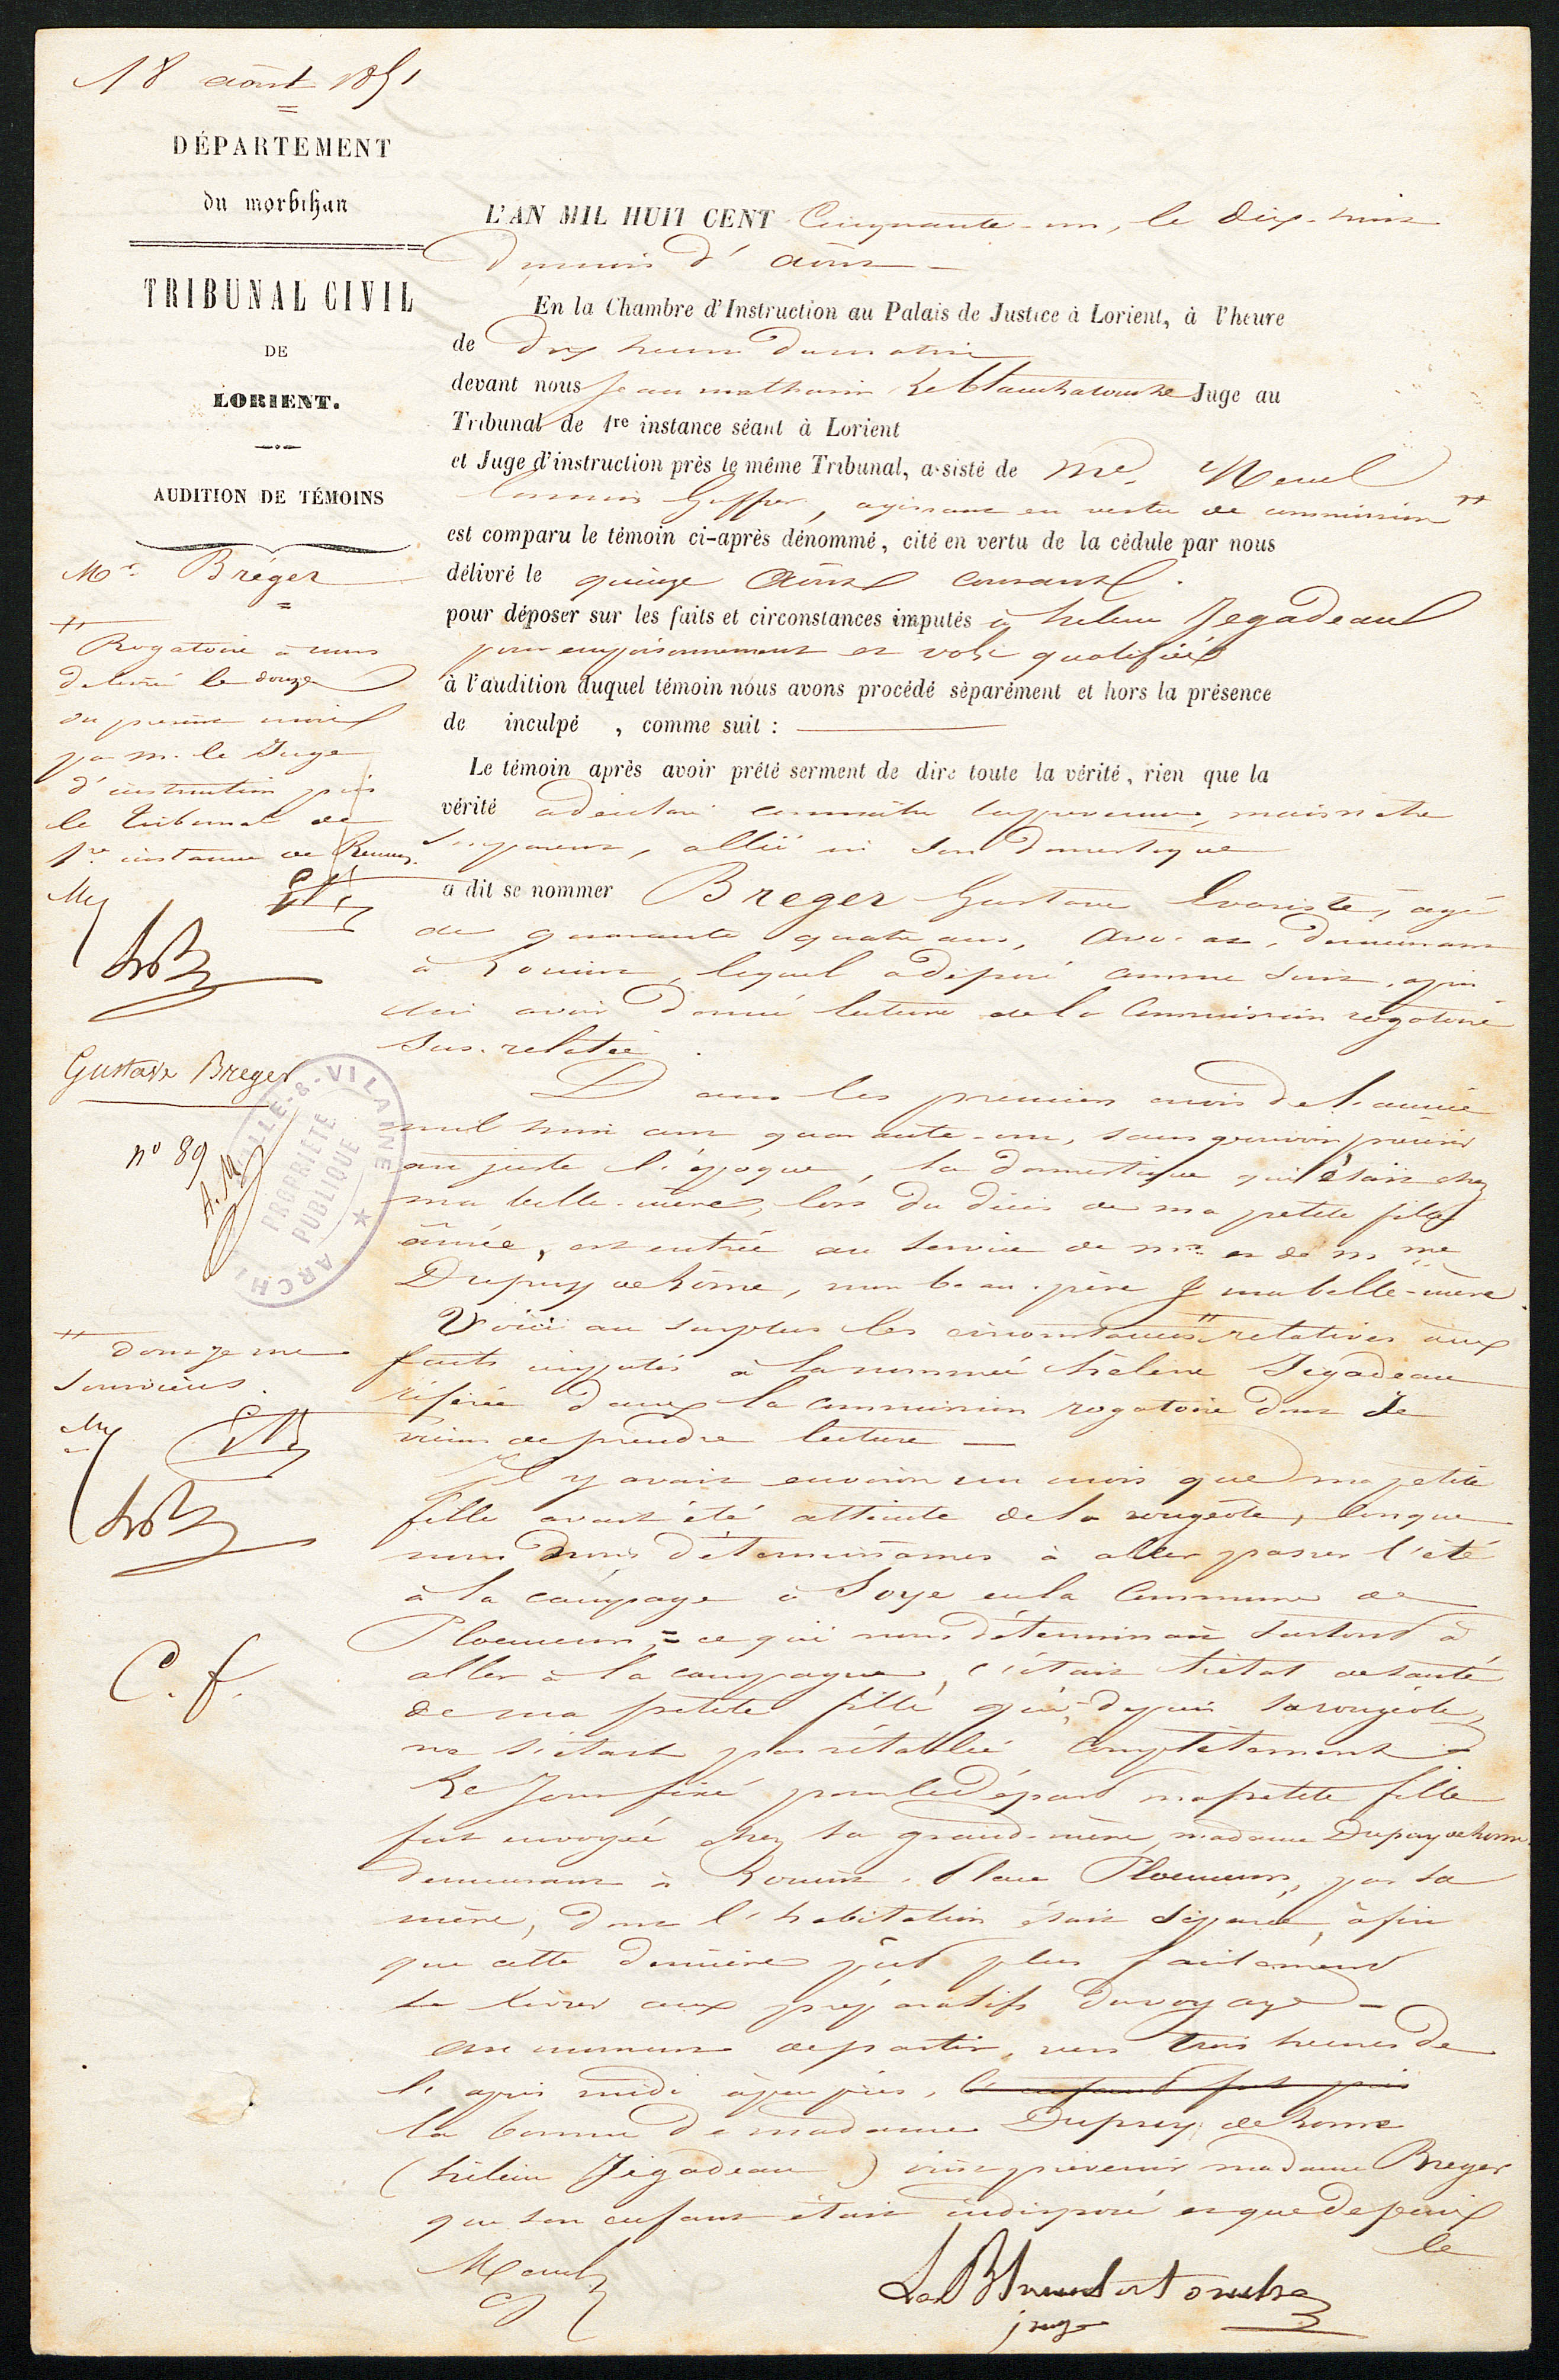 18 août 1851
DÉPARTEMENT
du morbihan
TRIBUNAL CIVIL
DE
LORIENT.
AUDITION DE TÉMOINS
Mr. Bréger
Rogatoire à nous
délivré le douze
du présent mois
par m. le Juge
d'instruction près
le tribunal de
1re instance de Rennes.
Gustave Breger
nº 89
A.M
ILLE-&-VILAINE ★ ARCHI
PROPRIÉTÉ
PUBLIQUE
dont je me
souviens.
C. f.
L'AN MIL HUIT CENT Cinquante-un, le dix-huit
du mois d'août
En la Chambre d'Instruction au Palais de Justice à Lorient, à l'heure
de dix heures du matin
devant nous Jean mathurin Le Blanchatouche Juge au
Tribunal de 1re instance séant à Lorient
et Juge d'instruction près le même Tribunal, assisté de
commis Greffier, agissant en vertu de commission
est comparu le témoin ci-après dénommé, cité en vertu de la cédule par nous
délivré le quinze août courant.
pour déposer sur les faits et circonstances imputés à helene Jegadeau
pour empoisonnement et vols qualifiés
à l'audition duquel témoin nous avons procédé séparément et hors la présence
de inculpé , comme suit :
Le témoin après avoir prêté serment de dire toute la vérité, rien que la
vérité a déclaré connaître la prevenue, mais n'etre
son parent, allié ni son domestique
a dit se nommer Breger Gustave Evariste, agé
de quarante quatre ans, avocat, demeurant
à Lorient, lequel a déposé comme suit, après
lui avoir donné lecture de la Commission rogatoire
sus-relatée.
Dans les premiers mois de l'année
mil huit cent quarante-un, sans pouvoir préciser
au juste l'époque, la domestique qui était chez
ma belle-mère, lors du décès de ma petite fille
aînée, est entrée au service de mr. et de mme
Dupuy de Lôme, mon beau-père & ma belle-mère.
Voici au surplus les circonstances relatives aux
faits imputés à la nommée helène Jegadeau
référée dans la commission rogatoire dont je
viens de prendre lecture
Il y avait environ un mois que ma petite
fille avait été atteinte de la rougeole, lorsque
nous nous déterminames à aller passer l'été
à la campagne à Soye en la Commune de
Ploemeur = ce qui nous déterminait surtout à
aller à la campagne, c'était l'état de santé
de ma petite fille qui, depuis sa rougeole,
ne s'était pas rétablie complètement
Le Jour fixé pour le départ ma petite fille
fut envoyée chez sa grand-mère madame Dupuy de Lome
demeurant à Lorient, Place Ploemeur, par sa
mère, dont l'habitation était séparée, afin
que cette dernière put plus facilement
se livrer aux préparatifs du voyage
au moment de partir, vers trois heures de
l'après midi à peu près, l'enfant fut pris
la bonne de madame Dupuy de Lome
(hélène Jégadeau) vint prévenir madame Breger
que son enfant était indisposé et que depuis
le
Le Blanchatouche
juge